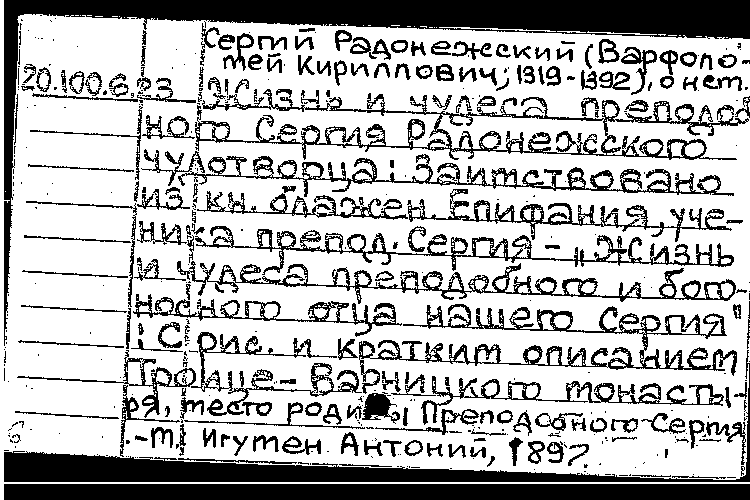 Сергий Радонежский (Варфоло-
мей Кириллович; 1319-1392), о нем.
20.100.6.23 Жизнь и чудеса преподоб
ного Сергия Радонежского
чудотворца: Заимствовано
из кн. блажен. Епифания, уче-
ника препод. Сергия - „Жизнь
и чудеса преподобного и бого-
носного отца нашего Сергия"
: С рис. и кратким описанием
Троице-Варницкого монасты-
ря, место родины Преподобного Сергия
.-М.: Игумен Антоний, 1897.